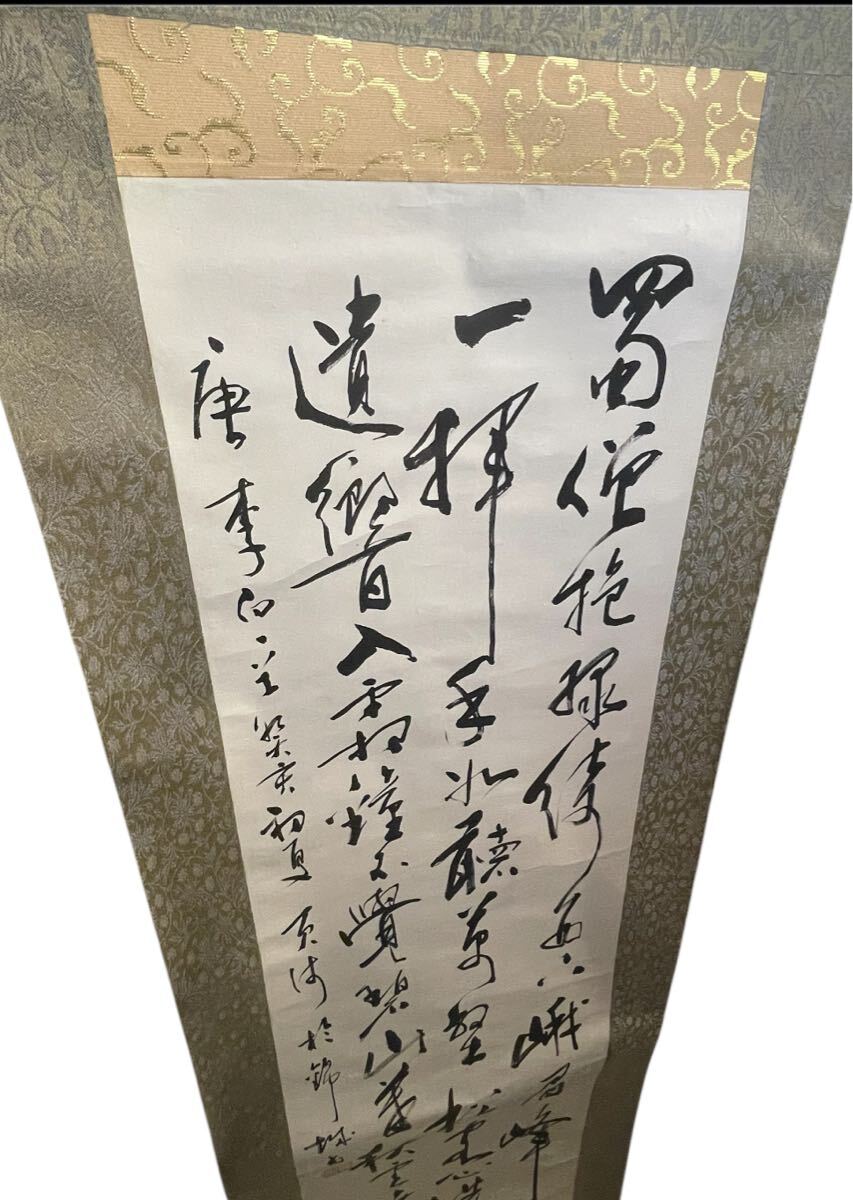 蜀僧抱綠綺西下峨眉峰
一揮手如聽萬壑松客心洗
遺響入霜鐘不覺碧山暮秋雲
唐李白癸亥初夏於錦城